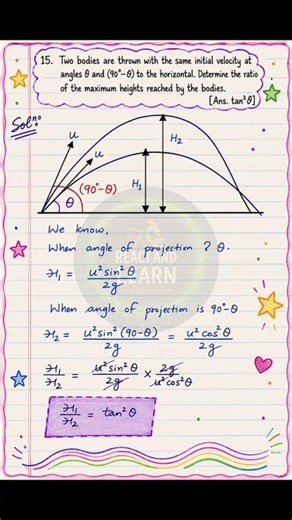 15. Two bodies are thrown with the same initial velocity at
angles θ and (90°–θ) to the horizontal. Determine the ratio
of the maximum heights reached by the bodies.
[Ans. tan²θ]
Solⁿ⁰
u
u
H₂
H₁
(90°-θ)
θ
REACT AND
LEARN
We know,
When angle of projection ? θ.
H₁ = u²sin²θ / 2g
When angle of projection is 90°-θ
H₂ = u²sin²(90-θ) / 2g = u²cos²θ / 2g
H₁ / H₂ = u²sin²θ / 2g × 2g / u²cos²θ
H₁ / H₂ = tan²θ